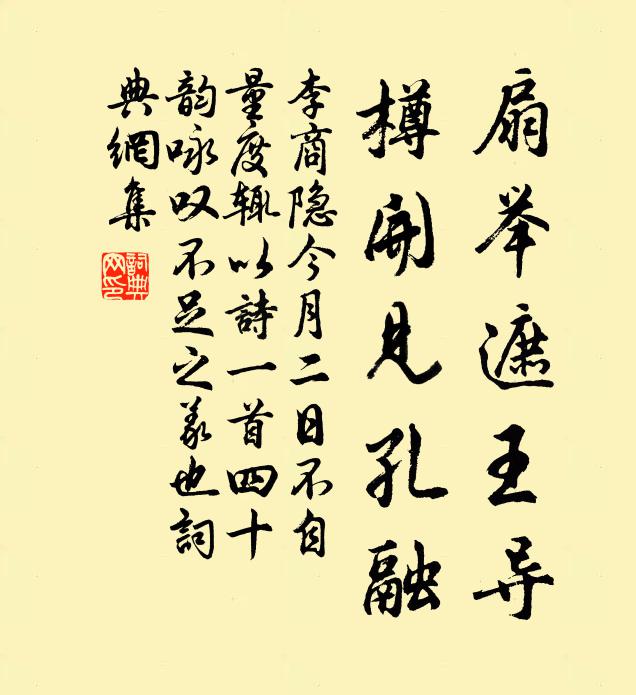 扇举遮王导
樽開見孔融
李商隐今月二日不自
量度辄以詩一首四十
韵咏叹不足之义也詞
典網集
詞典
网印